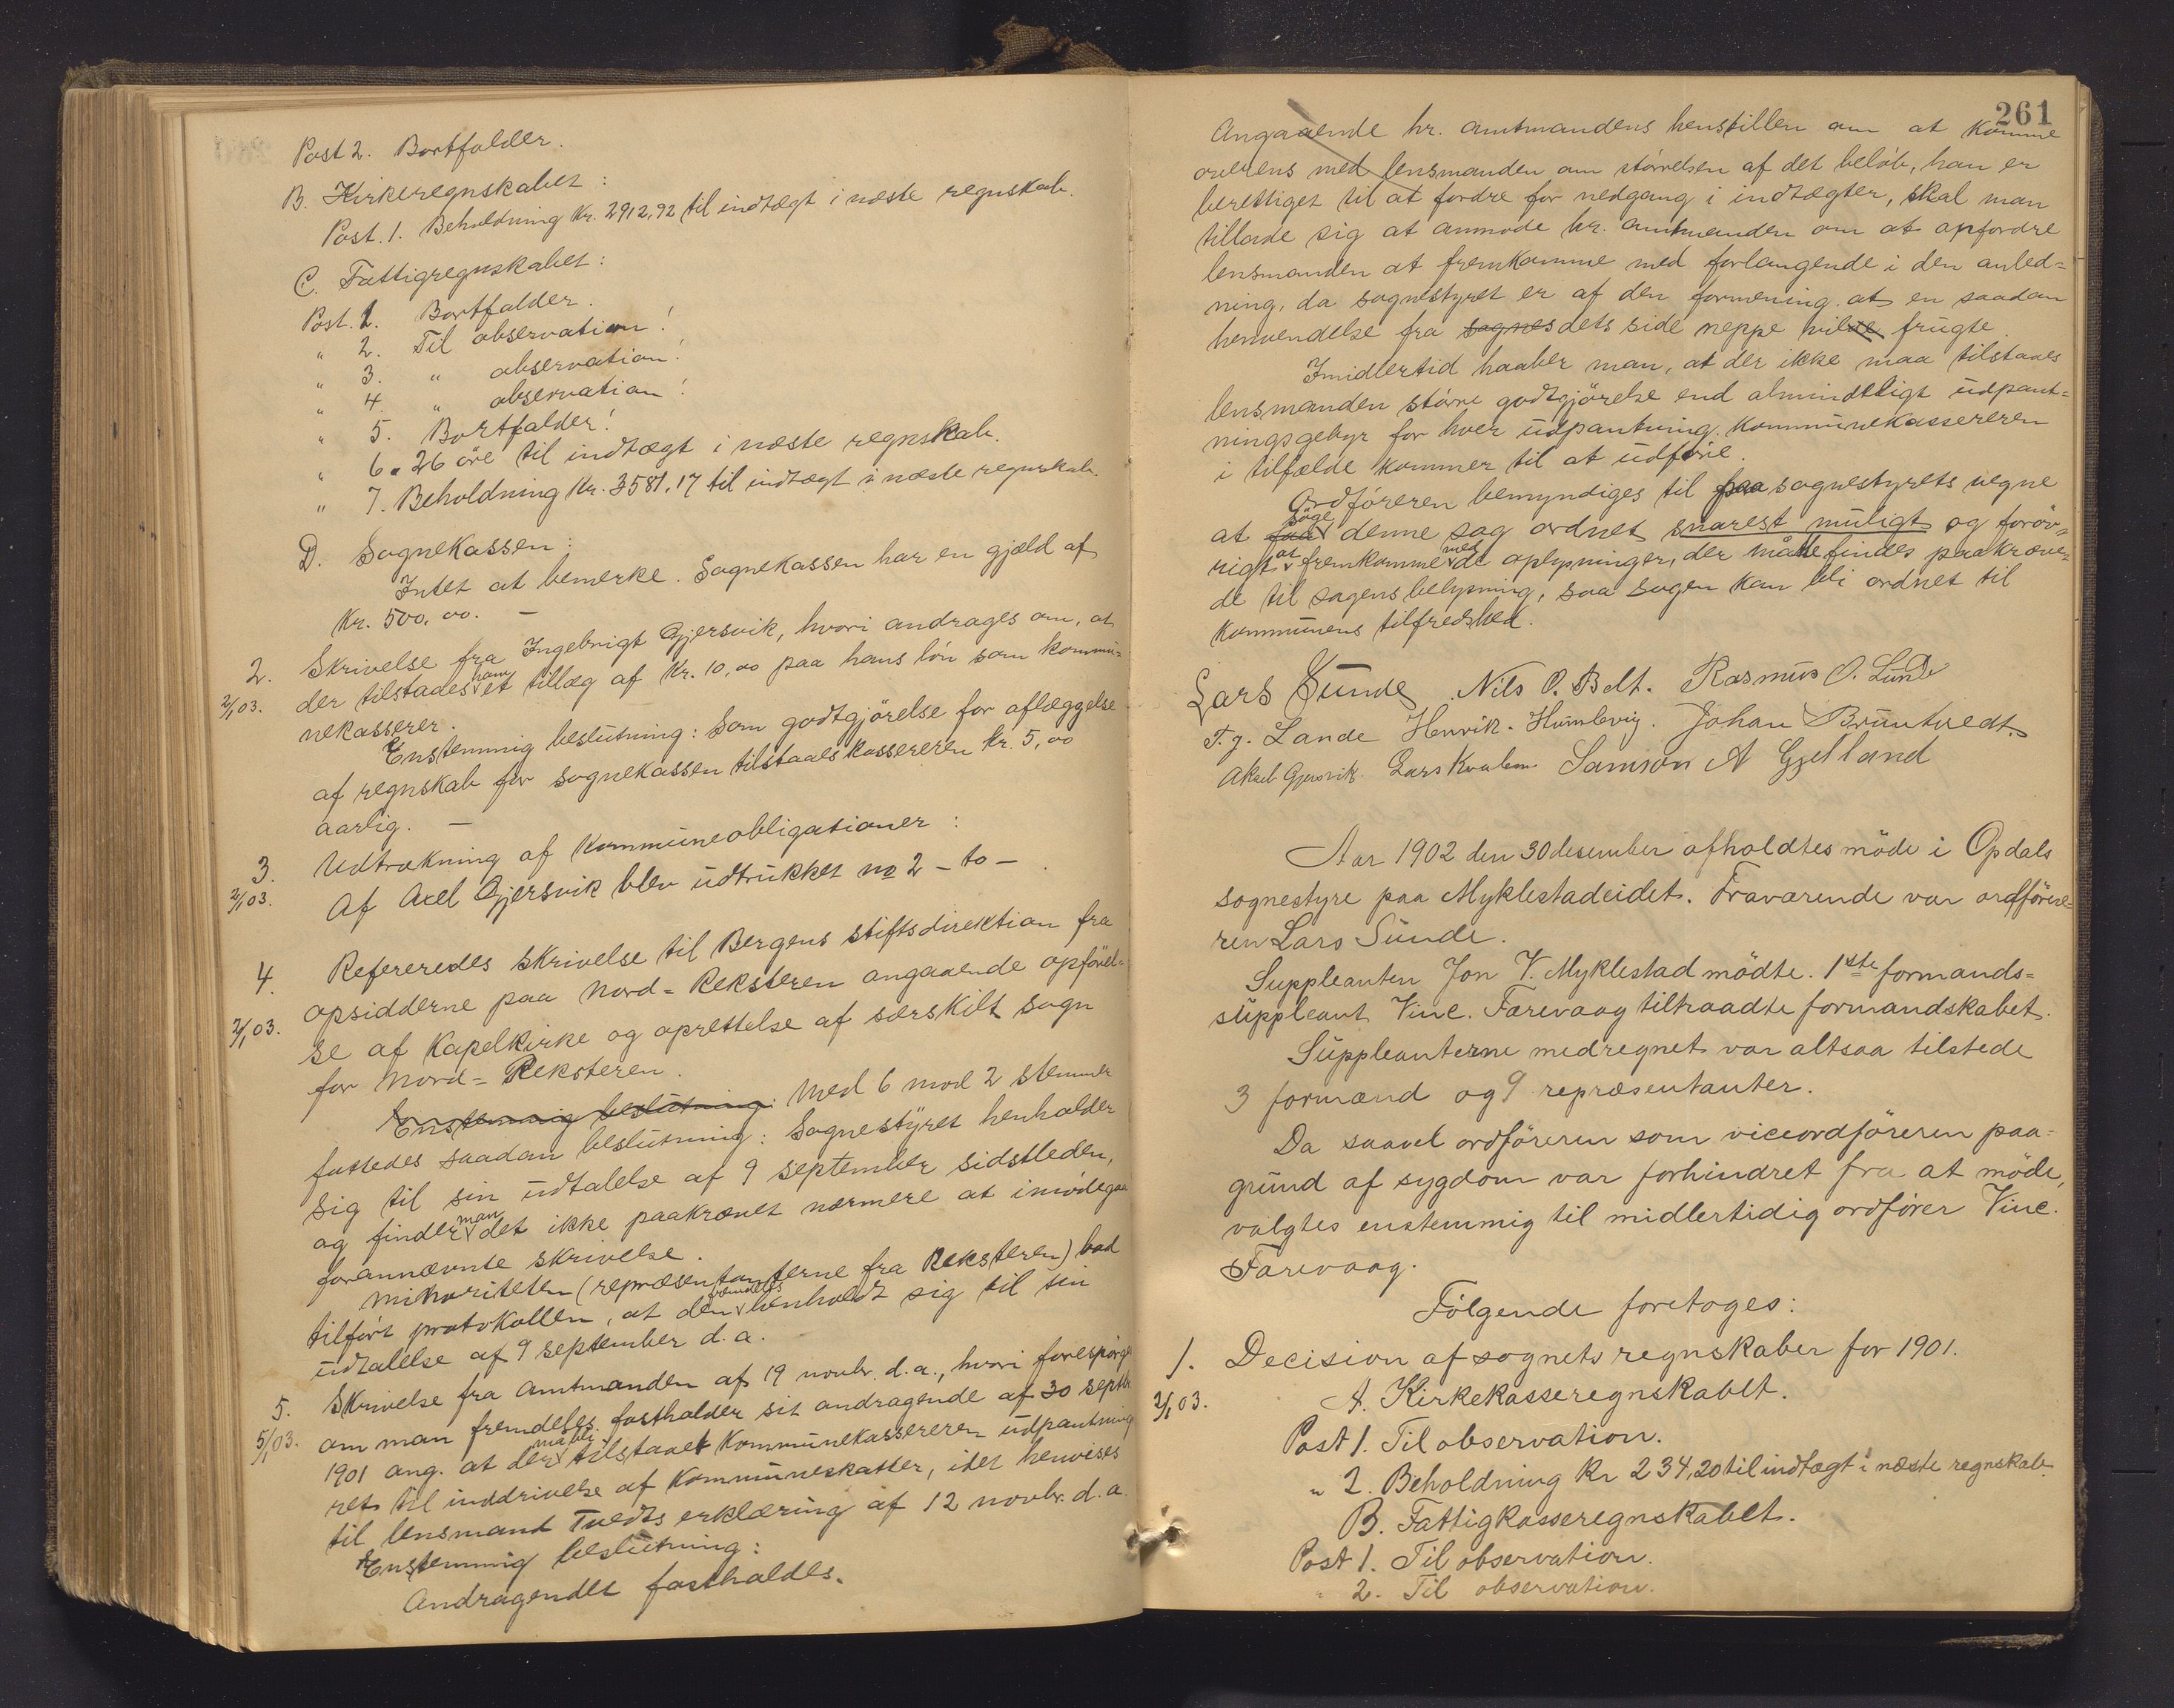 Post 2. Bortfalder.
B. Kirkeregnskabet:
Post. 1. Beholdning Kr. 2912,92 til indtægt i næste regnskab.
C. Fattigregnskabet:
Post. 1. Bortfalder.
" 2. Til observation!
" 3. " observation!
" 4. " observation!
" 5. Bortfalder!
" 6. 26 øre til indtægt i næste regnskab.
" 7. Beholdning Kr. 3581,17 til indtægt i næste regnskab.
D. Sognekassen:
Intet at bemerke. Sognekassen har en gjæld af
Kr. 500,00. —
2. Skrivelse fra Ingebrigt Gjersvik, hvori andrages om, at
2/1 03. der tilstaaes ham et tillæg af Kr. 10,00 paa hans løn som kommu=
nekasserer.
Enstemmig beslutning: Som godtgjørelse for aflæggelse
af regnskab for sognekassen tilstaaes kassereren Kr. 5,00
aarlig. —
3. Udtrækning af Kommuneobligationer:
2/1 03. Af Axel Gjersvik blev udtrukket no 2 - to -
4. Refereredes skrivelse til Bergens stiftsdirektion fra
opsidderne paa Nord=Reksteren angaaende opførel=
2/1 03. se af Kapelkirke og oprettelse af særskilt sogn
for Nord=Reksteren.
Enstemmig beslutning: Med 6 mod 2 stemmer
fattedes saadan beslutning: Sognestyret henholder
sig til sin udtalelse af 9 september sidstleden,
og finder man det ikke paakrævet nærmere at imødegaa
forannævnte skrivelse.
Minoriteten (repræsentanterne fra Reksteren) bad
tilført protokollen, at den fremdeles henholdt sig til sin
udtalelse af 9 september d.a.
5. Skrivelse fra Amtmanden af 19 novbr. d.a., hvori forespørges
5/1 03. om man fremdeles fastholder sit andragende af 30 septbr
1901 ang. at der må bli tilstaaet Kommunekassereren udpantnings
ret til inddrivelse af Kommuneskatter, idet henvises
til lensmand Tvedts erklæring af 12 novbr. d.a.
Enstemmig beslutning:
Andragendet fastholdes.
261
Angaaende hr. amtmandens henstillen om at komme
overens med lensmanden om størrelsen af det beløb, han er
berettiget til at fordre for nedgang i indtægter, skal man
tillade sig at anmode hr. amtmanden om at opfordre
lensmanden at fremkomme med forlangende i den anled=
ning, da sognestyret er af den formening at en saadan
henvendelse fra sognes dets side neppe vilde frugte.
Imidlertid haaber man, at der ikke maa tilstaaes
lensmanden større godtgjørelse end almindeligt udpant=
ningsgebyr for hver udpantning Kommunekassereren
i tilfælde kommer til at udføre.
Ordføreren bemyndiges til paa sognestyrets vegne
at faa søge denne sag ordnet snarest muligt og forøv=
rigt at fremkomme med de oplysninger, der måtte findes paakræve=
de til sagens belysning, saa sagen kan bli ordnet til
Kommunens tilfredshed.
Lars Sunde Nils O. Belt. Rasmus O. Lunde
T. J. Lande Henrik. Humlevig. Johan Bruntvedt.
Aksel Gjersvik. Lars Kvalem Samson A Gjelland
Aar 1902 den 30 desember afholdtes møde i Opdals
sognestyre paa Myklestadeidet. Fraværende var ordføre=
ren Lars Sunde.
Suppleanten Jon V. Myklestad mødte. 1ste formands=
suppleant Vinc. Farevaag tiltraadte formandskabet.
Suppleanterne medregnet var altsaa tilstede
3 formænd og 9 repræsentanter.
Da saavel ordføreren som viceordføreren paa=
grund af sygdom var forhindret fra at møde,
valgtes enstemmig til midlertidig ordfører Vinc.
Farevaag.
Følgende foretoges:
1. Decision af sognets regnskaber for 1901.
2/1 03. A. Kirkekasseregnskabet.
Post 1. Til observation.
" 2. Beholdning Kr 234,20 til indtægt i næste regnskab.
B. Fattigkasseregnskabet.
Post 1. Til observation.
" 2. Til observation.